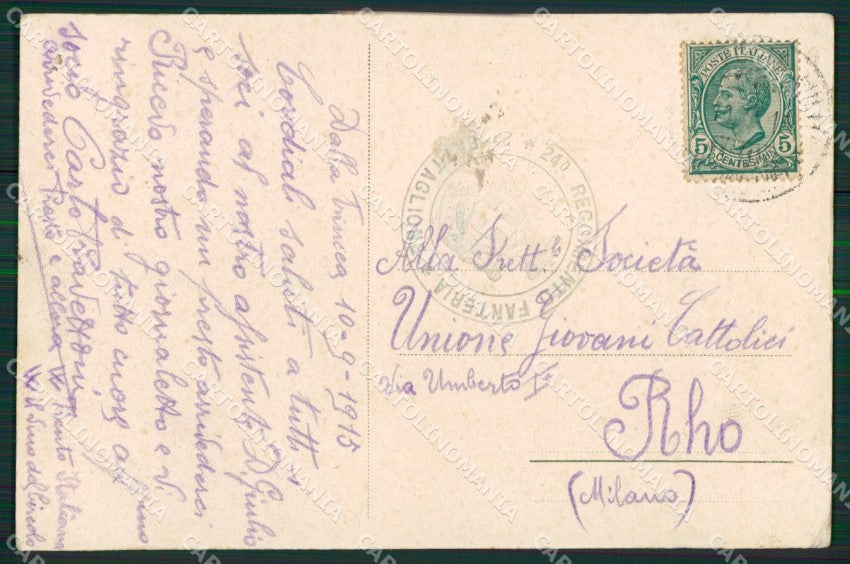 Dalla Trincea 10-9-1915
Cordiali saluti a tutti i
soci al nostro assistente D. Giulio
e sperando un presto arrivederci
Ricevo nostro giornaletto e Vi
ringrazio di tutto cuore
socio Carlo
arrivederci Presto e allora Trento Italiana
W il del Circolo
POSTE ITALIANE
5 CENTESIMI 5
* 24° REGGIMENTO FANTERIA
BATTAGLIONE
Alla Sett. Società
Unione Giovani Cattolici
Via Umberto I°
Rho
(Milano)
CARTOLINOMANIA